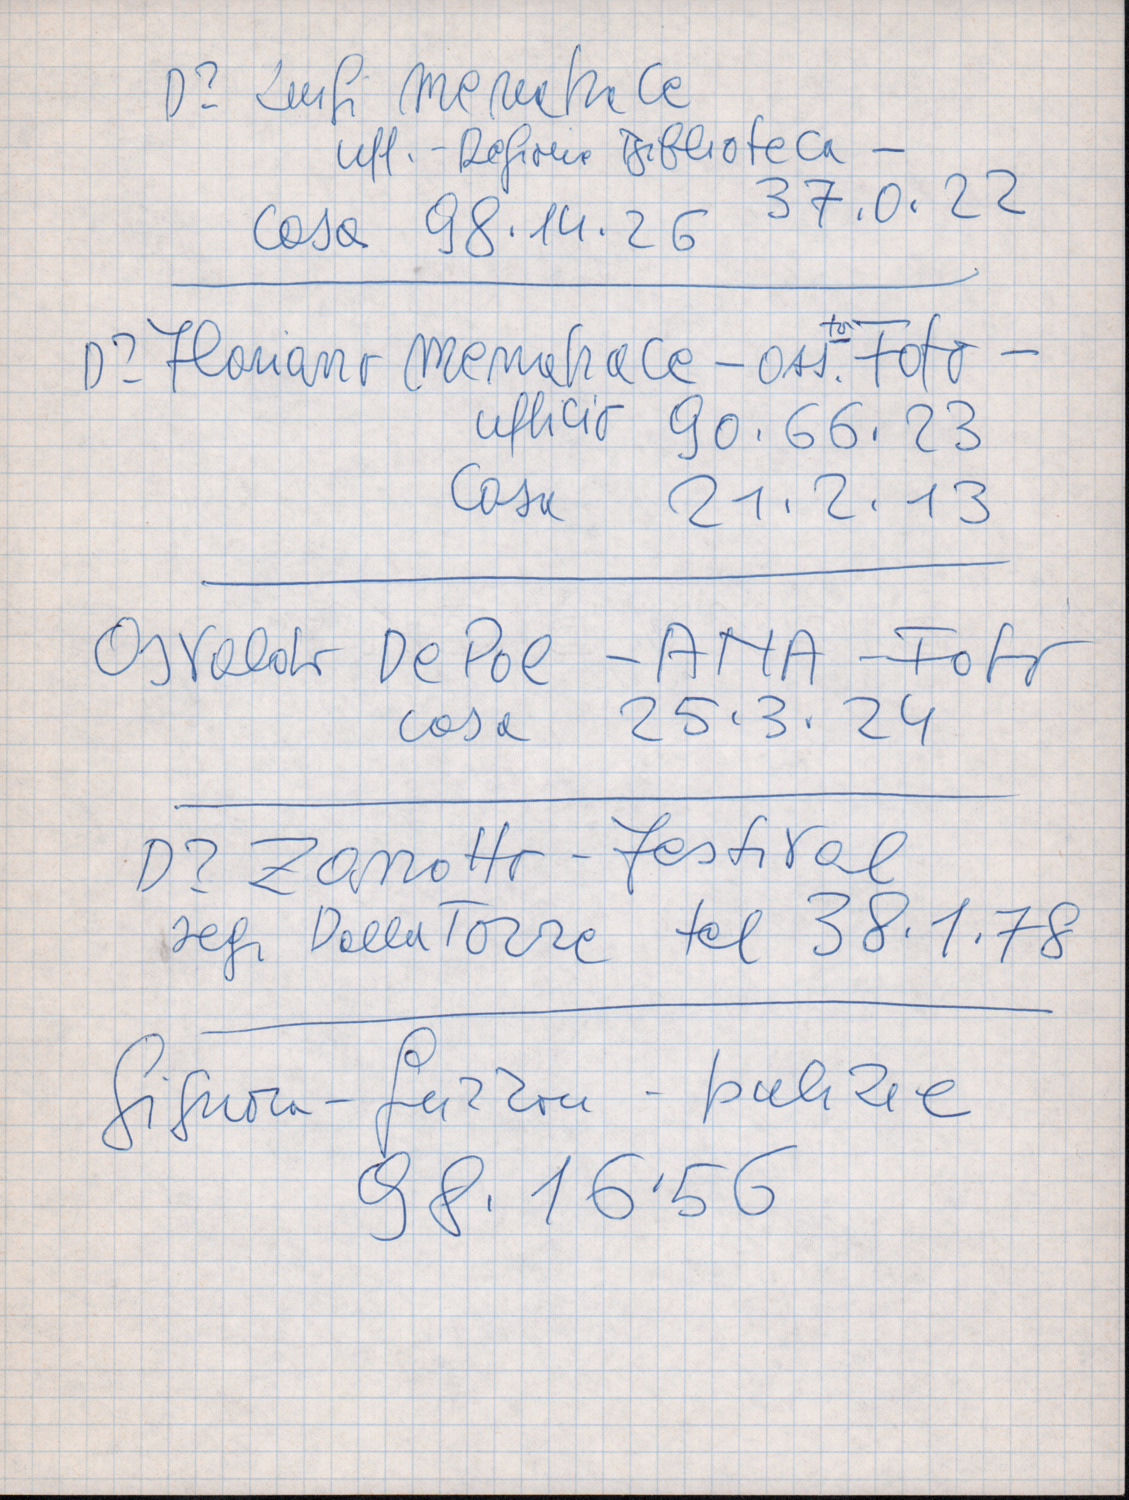 Dr Luigi Menapace
uff. - Regione Biblioteca -
37.0.22
casa 98.14.26
Dr Floriano Menapace - Ass.to Foto -
ufficio 90.66.23
Casa 21.2.13
Osvaldo De Pol - ANA - Foto
casa 25.3.24
Dr Zanotto - Festival
seg. Dalla Torre tel 38.1.78
Signora - - pulizie
98.16.56